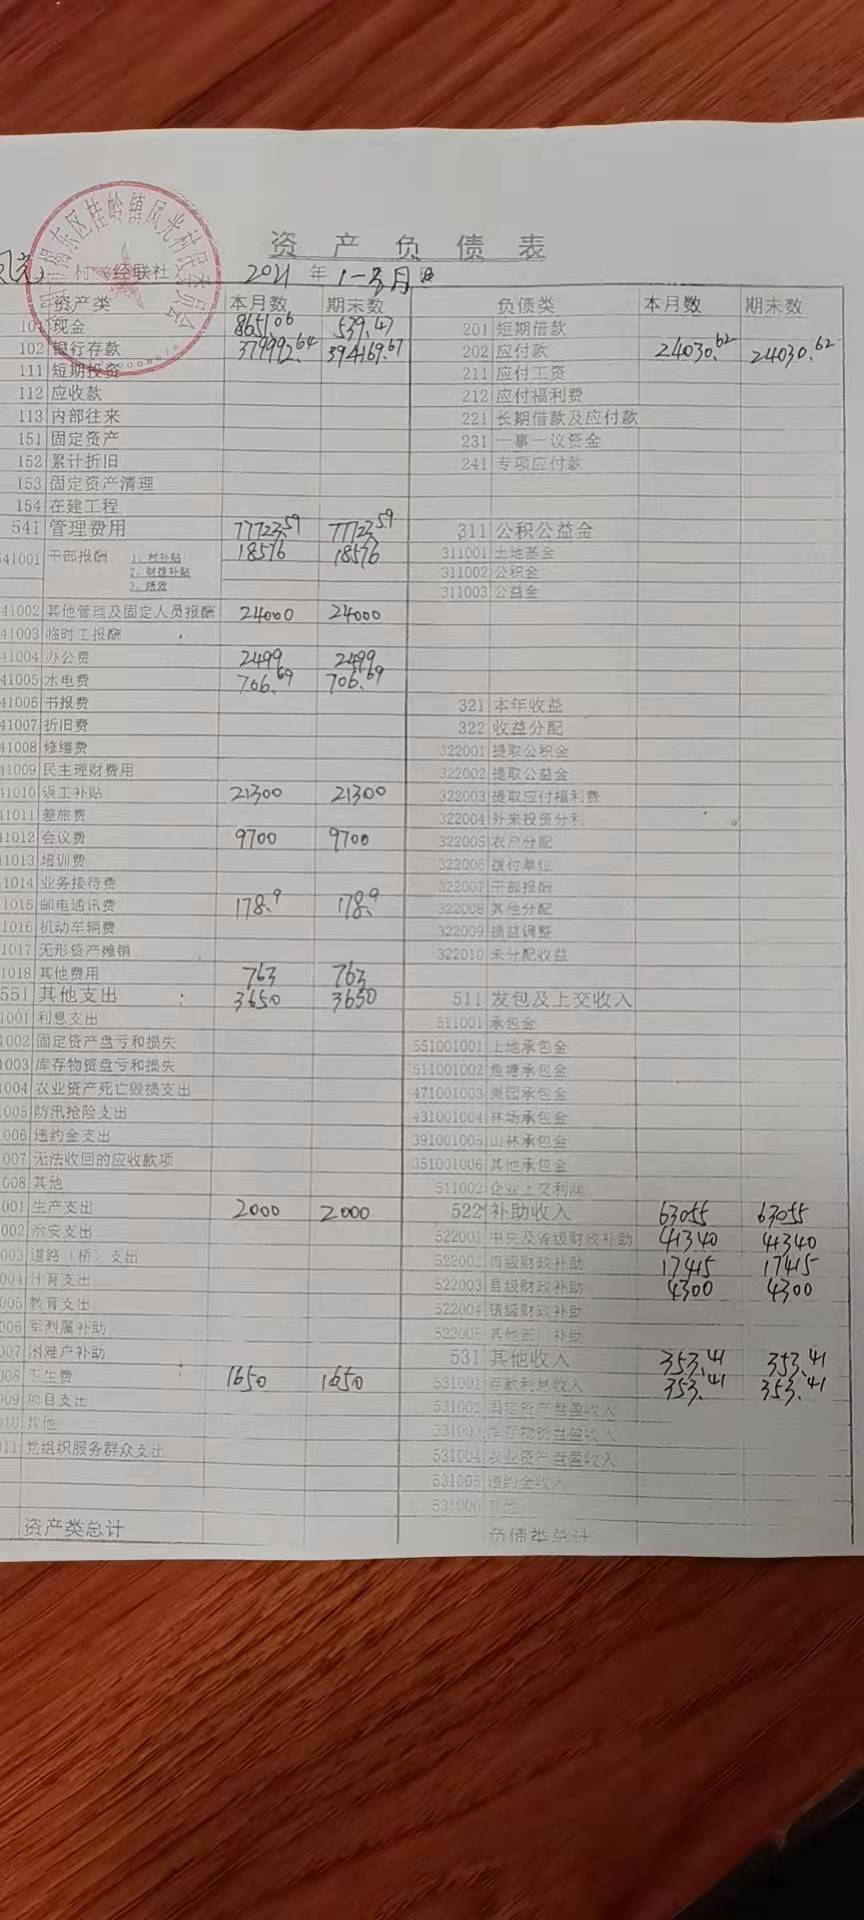 资产负债表
村 经联社 2021 年 1-3月
揭东区桂岭镇风光村民委员会
资产类 本月数 期末数 负债类 本月数 期末数
现金 8651.06 539.47 201 短期借款
102 银行存款 379992.64 394169.67 202 应付款 24030.62 24030.62
111 短期投资 211 应付工资
112 应收款 212 应付福利费
113 内部往来 221 长期借款及应付款
151 固定资产 231 一事一议资金
152 累计折旧 241 专项应付款
153 固定资产清理
154 在建工程
541 管理费用 77723.59 77723.59 311 公积公益金
541001 干部报酬 1、村补贴 18576 18576 311001 土地基金
2、财拨补贴 311002 公积金
3、绩效 311003 公益金
41002 其他管理及固定人员报酬 24000 24000
41003 临时工报酬
41004 办公费 2499 2499
41005 水电费 706.69 706.69
41006 书报费 321 本年收益
41007 折旧费 322 收益分配
41008 修缮费 322001 提取公积金
41009 民主理财费用 322002 提取公益金
41010 误工补贴 21300 21300 322003 提取应付福利费
41011 差旅费 322004 外来投资分利
41012 会议费 9700 9700 322005 农户分配
41013 培训费 322006 拨付单位
1014 业务接待费 322007 干部报酬
1015 邮电通讯费 178.9 178.9 322008 其他分配
1016 机动车辆费 322009 损益调整
1017 无形资产摊销 322010 未分配收益
1018 其他费用 763 763
551 其他支出 3650 3650 511 发包及上交收入
1001 利息支出 511001 承包金
1002 固定资产盘亏和损失 551001001 土地承包金
1003 库存物资盘亏和损失 511001002 鱼塘承包金
1004 农业资产死亡毁损支出 471001003 果园承包金
1005 防汛抢险支出 431001004 林场承包金
006 违约金支出 391001005 山林承包金
007 无法收回的应收款项 351001006 其他承包金
008 其他 511002 企业上交利润
001 生产支出 2000 2000 522 补助收入 63055 63055
002 治安支出 522001 中央及省级财政补助 41340 41340
003 道路（桥）支出 522002 市级财政补助 17415 17415
004 计育支出 522003 县级财政补助 4300 4300
005 教育支出 522004 镇级财政补助
006 军烈属补助 522005 其他部门补助
007 困难户补助 531 其他收入 353.41 353.41
008 卫生费 1650 1650 531001 存款利息收入 353.41 353.41
009 项目支出 531002 固定资产盘盈收入
010 其他 531003 库存物资盘盈收入
011 党组织服务群众支出 531004 农业资产盘盈收入
531005 违约金收入
531006 其他
资产类总计 负债类总计